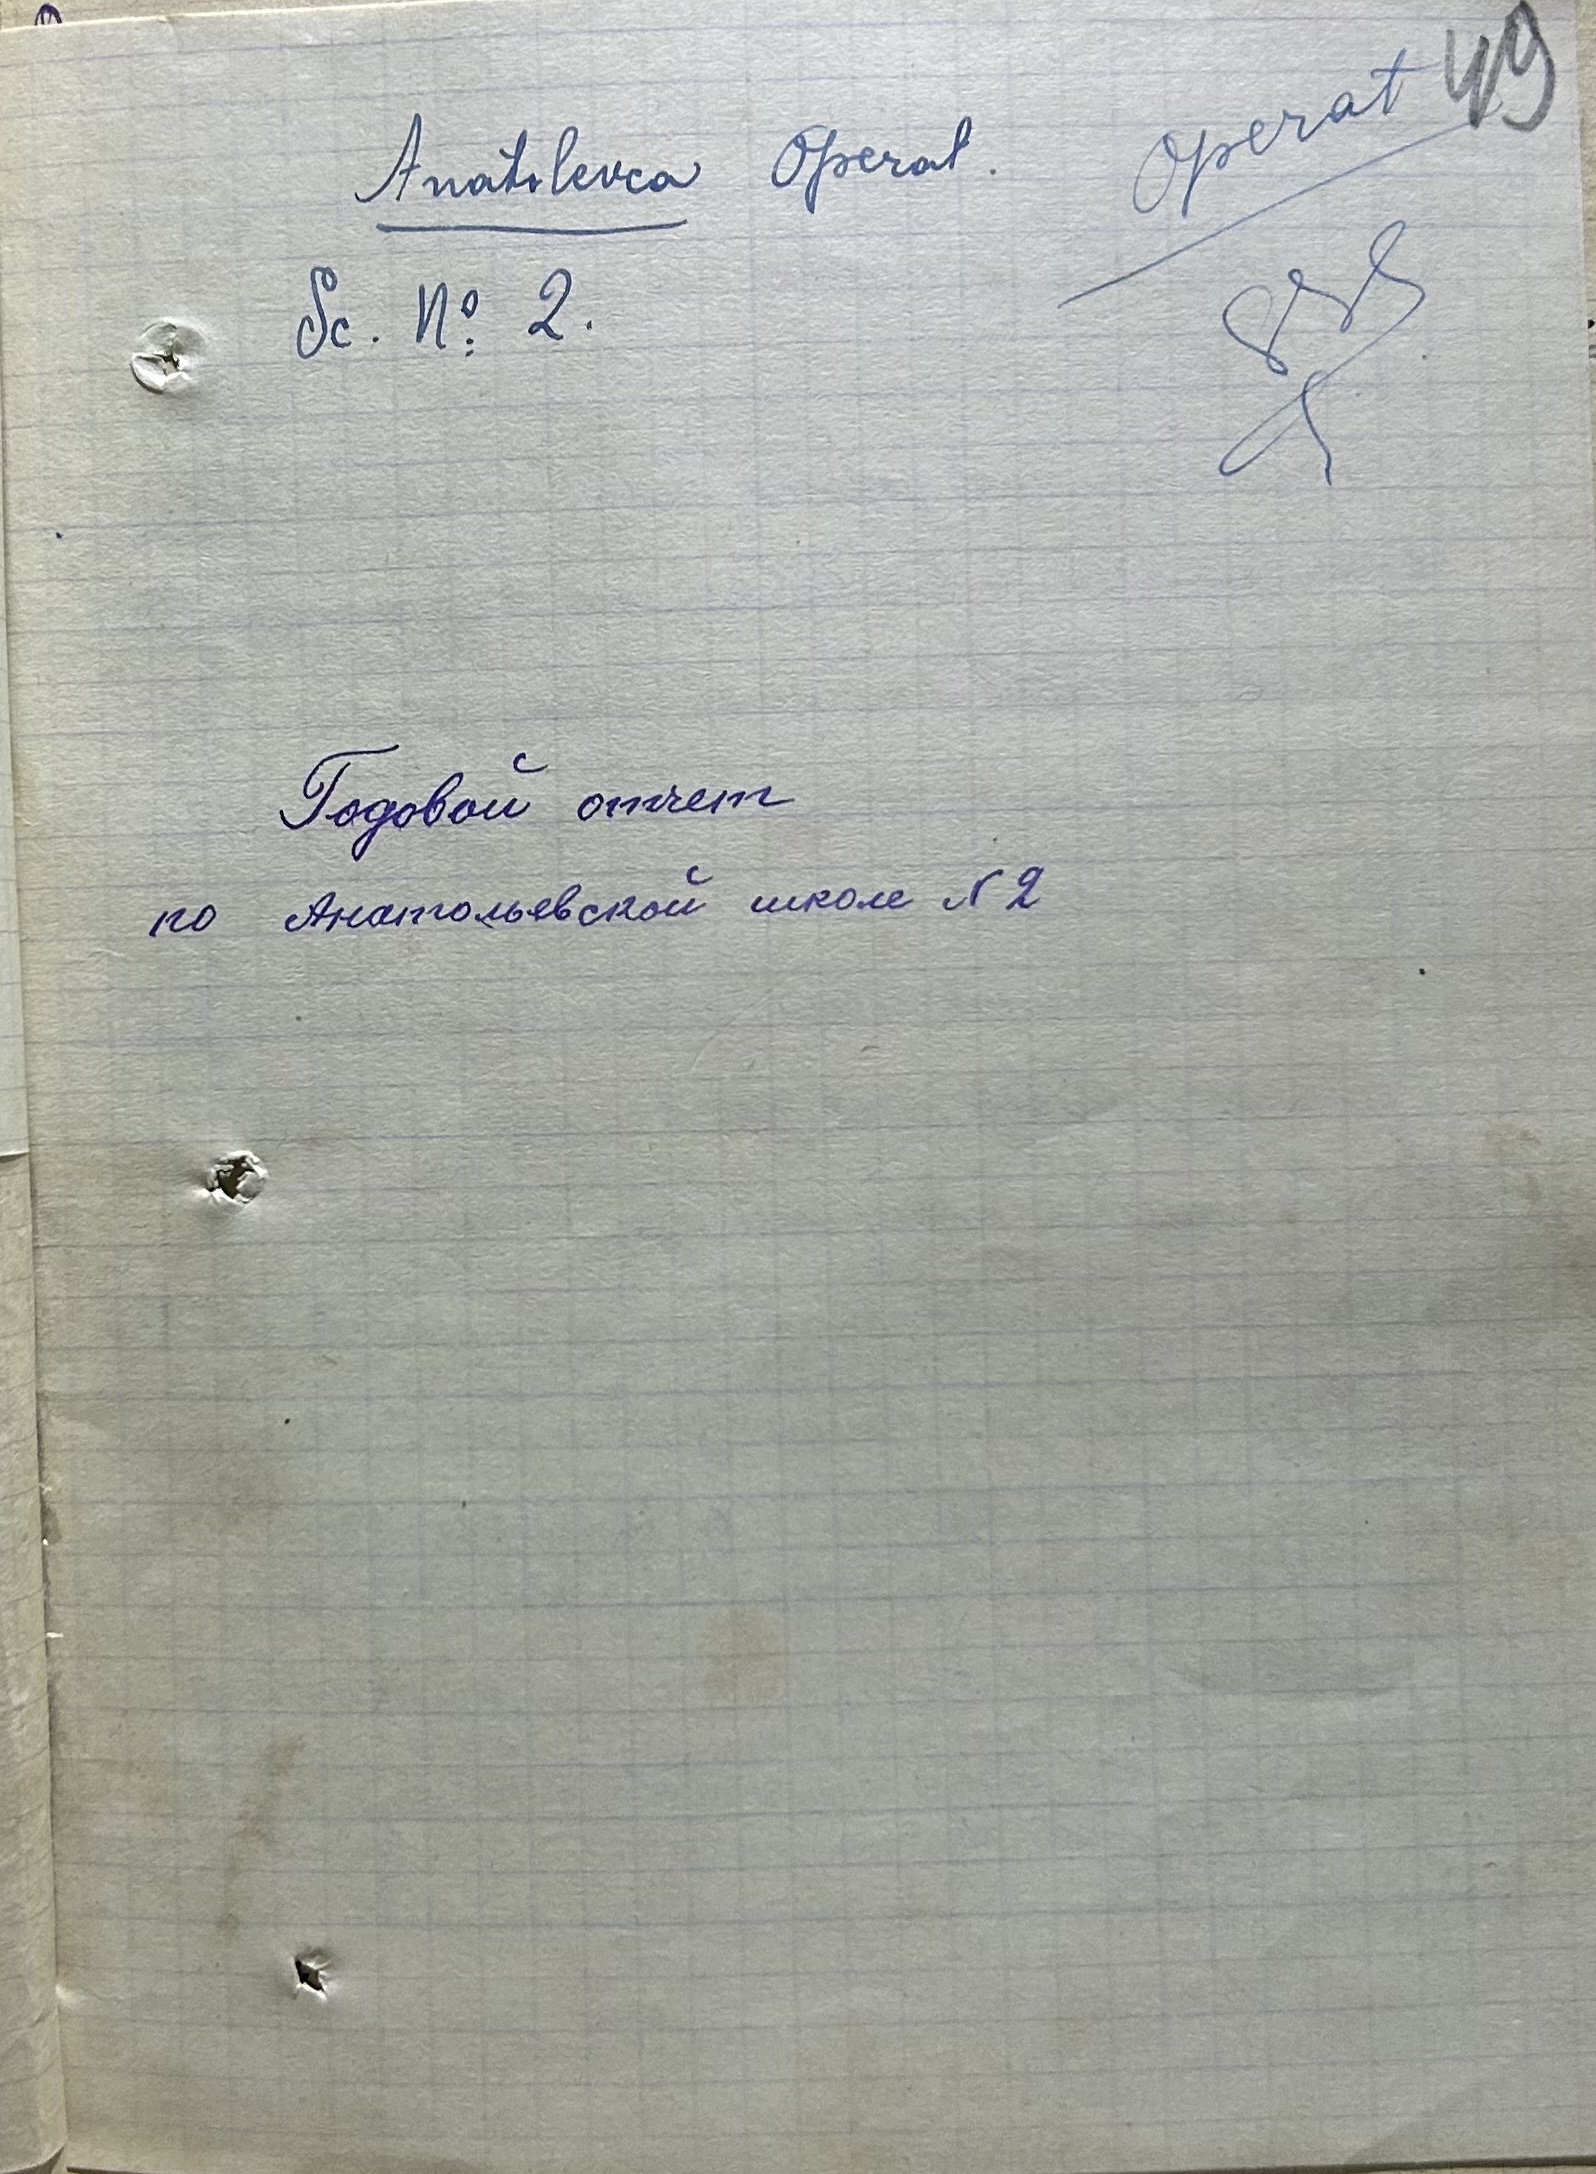 49
Operat
Anatolevca Operat.
Sc. No: 2.
Годовой отчет
по Анатольевской школе N2